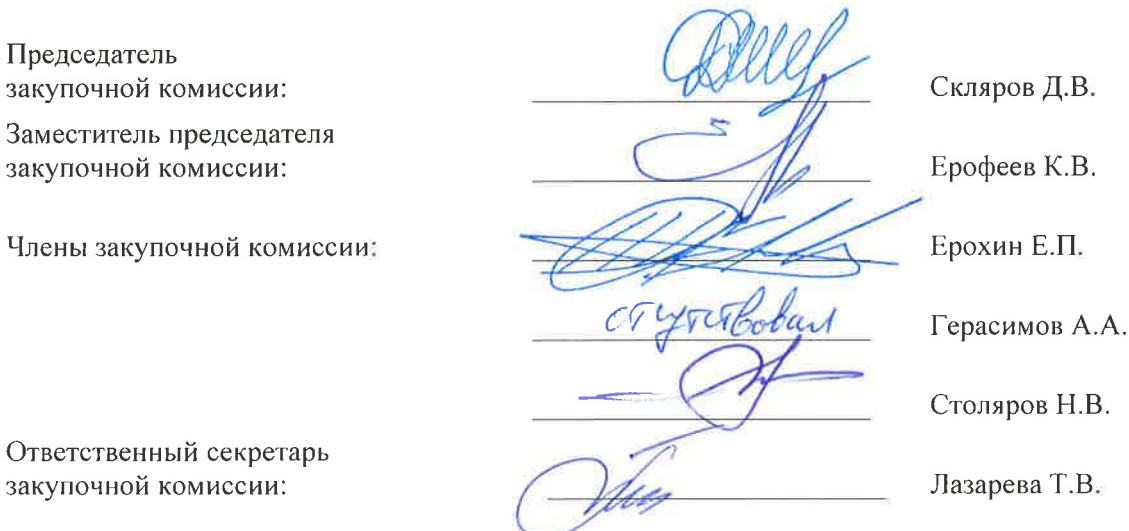 Председатель
закупочной комиссии:
Скляров Д.В.
Заместитель председателя
закупочной комиссии:
Ерофеев К.В.
Члены закупочной комиссии:
Ерохин Е.П.
отсутствовал
Герасимов А.А.
Столяров Н.В.
Ответственный секретарь
закупочной комиссии:
Лазарева Т.В.